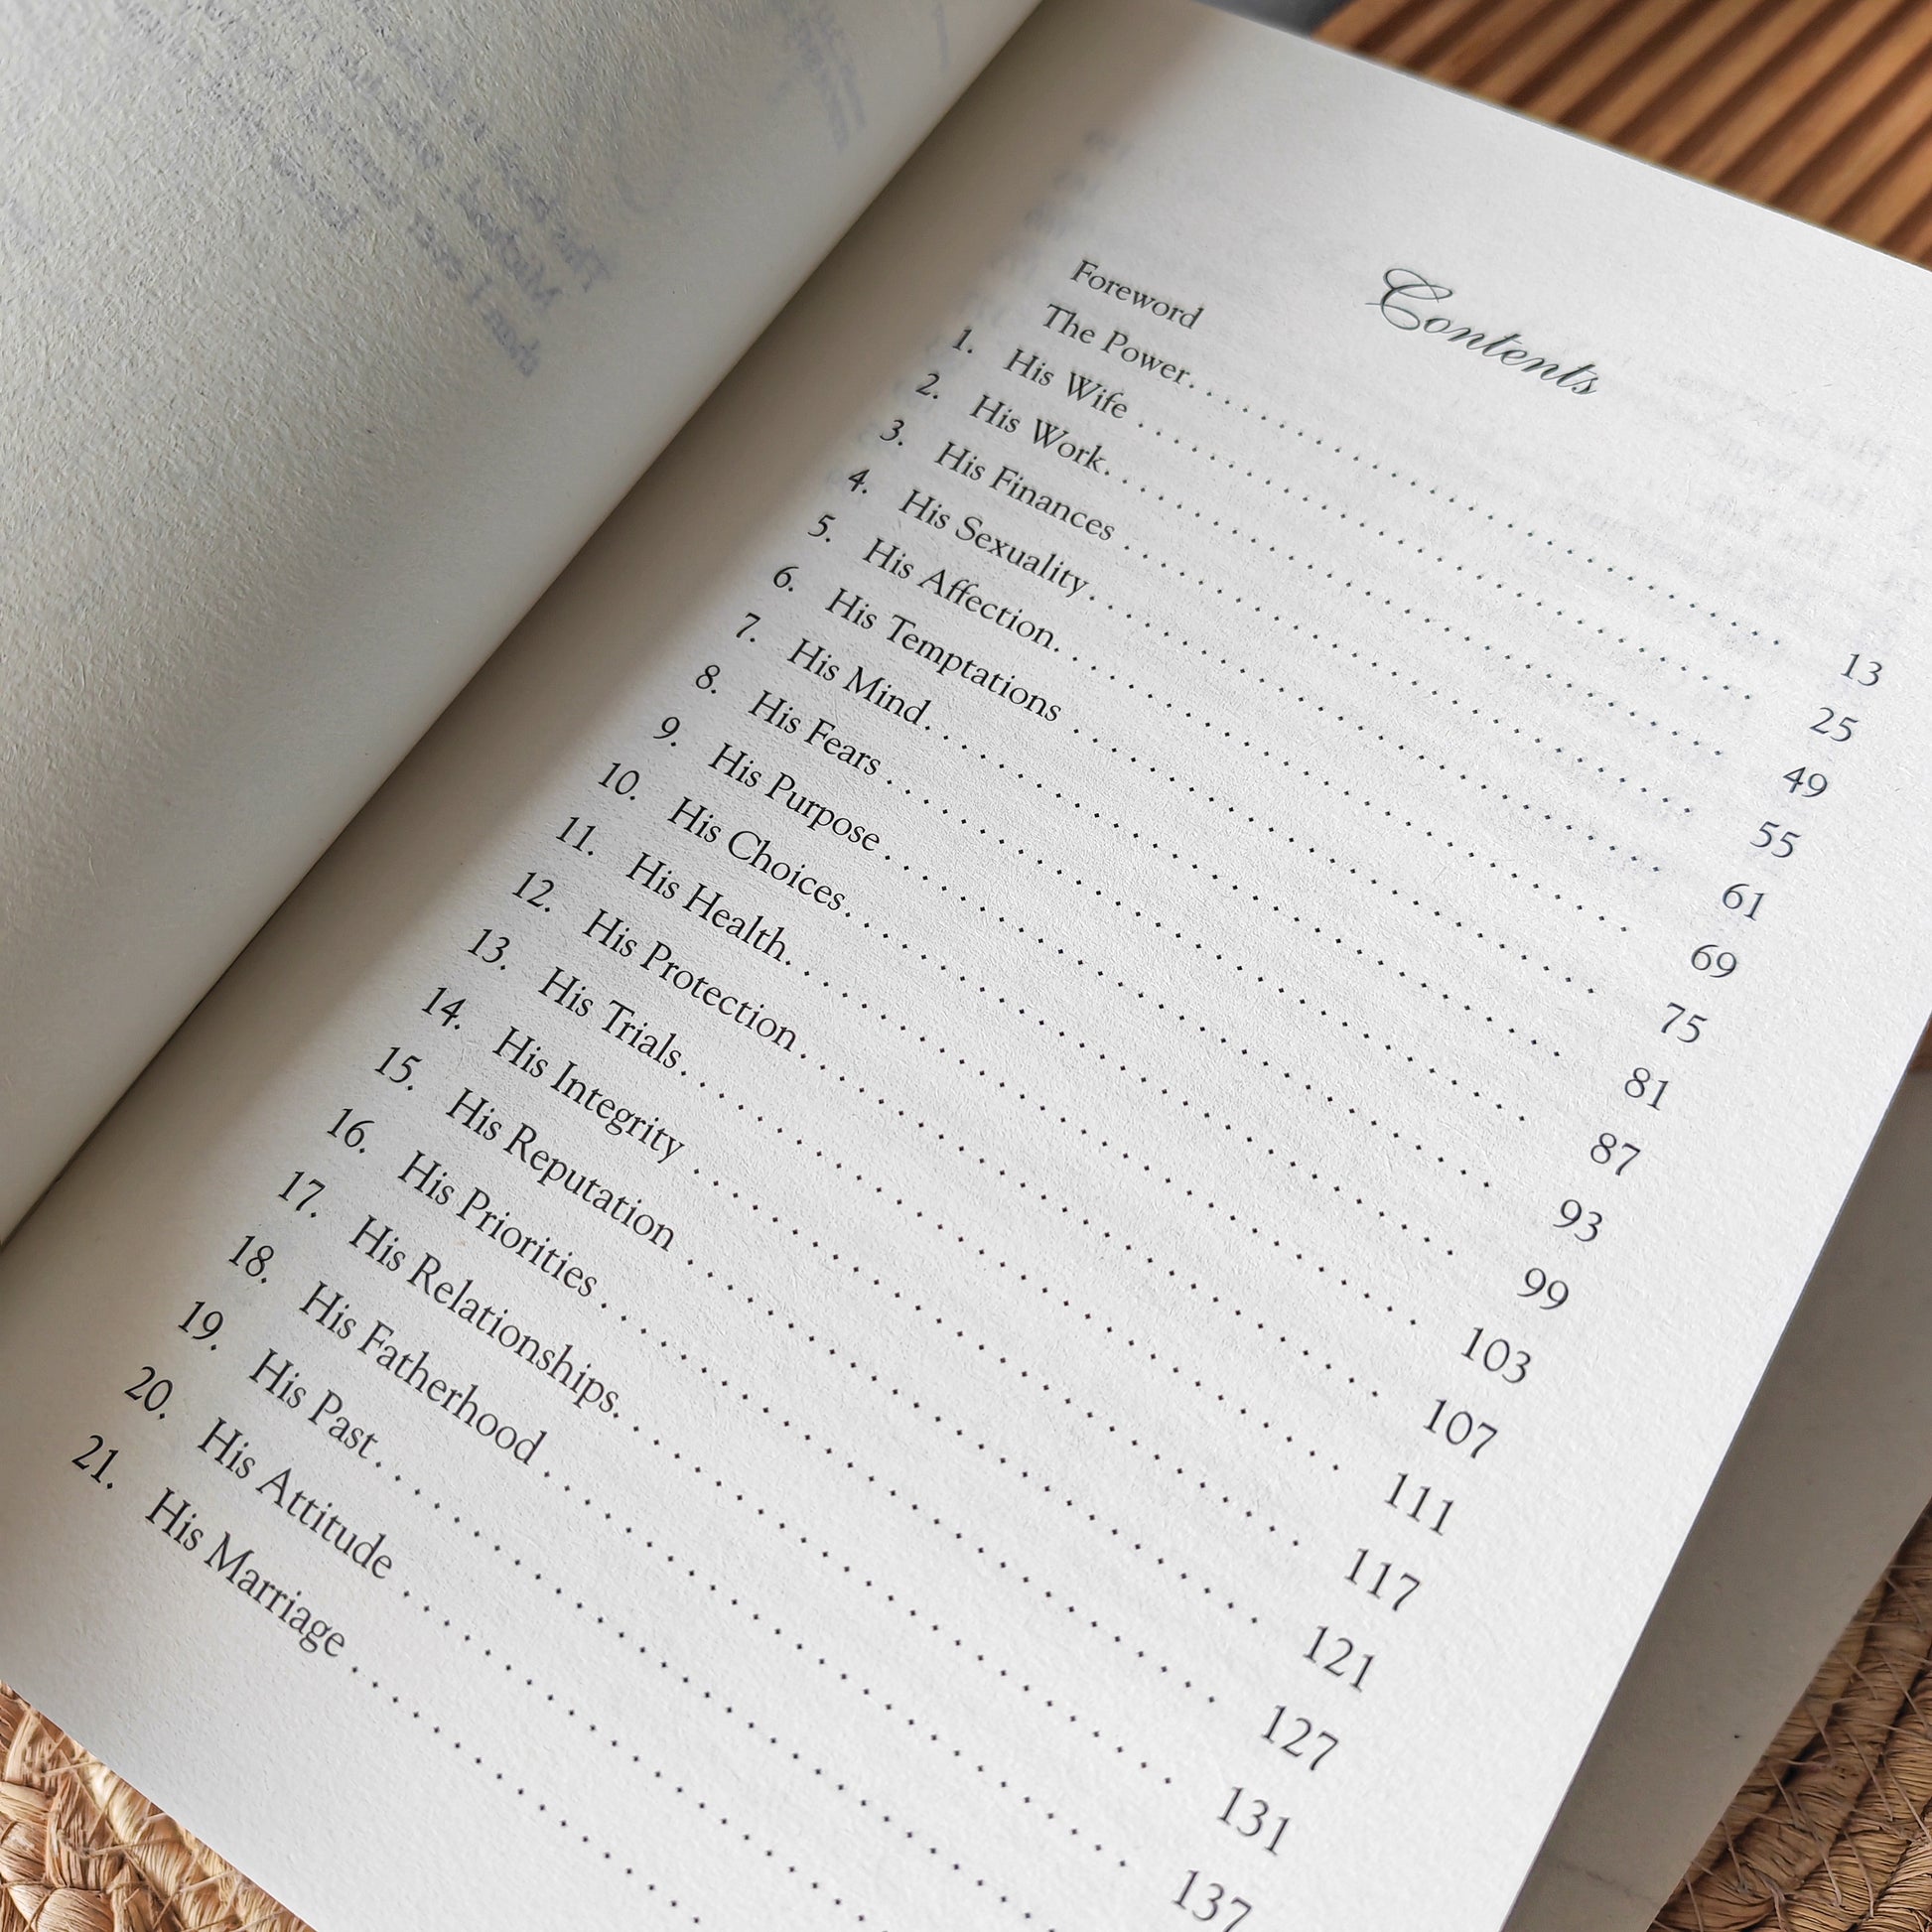 Contents
Foreword
The Power . . . . . . . . . . . . . . . . . . . . 13
1. His Wife . . . . . . . . . . . . . . . . . . . . 25
2. His Work . . . . . . . . . . . . . . . . . . . . 49
3. His Finances . . . . . . . . . . . . . . . . . . . . 55
4. His Sexuality . . . . . . . . . . . . . . . . . . . . 61
5. His Affection . . . . . . . . . . . . . . . . . . . . 69
6. His Temptations . . . . . . . . . . . . . . . . . . . . 75
7. His Mind . . . . . . . . . . . . . . . . . . . . 81
8. His Fears . . . . . . . . . . . . . . . . . . . . 87
9. His Purpose . . . . . . . . . . . . . . . . . . . . 93
10. His Choices . . . . . . . . . . . . . . . . . . . . 99
11. His Health . . . . . . . . . . . . . . . . . . . . 103
12. His Protection . . . . . . . . . . . . . . . . . . . . 107
13. His Trials . . . . . . . . . . . . . . . . . . . . 111
14. His Integrity . . . . . . . . . . . . . . . . . . . . 117
15. His Reputation . . . . . . . . . . . . . . . . . . . . 121
16. His Priorities . . . . . . . . . . . . . . . . . . . . 127
17. His Relationships . . . . . . . . . . . . . . . . . . . . 131
18. His Fatherhood . . . . . . . . . . . . . . . . . . . . 137
19. His Past . . . . . . . . . . . . . . . . . . . .
20. His Attitude . . . . . . . . . . . . . . . . . . . .
21. His Marriage . . . . . . . . . . . . . . . . . . . .